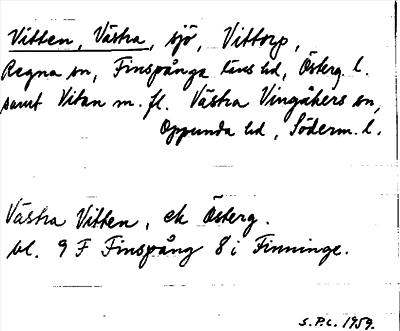 Vitten, Västra, sjö, Vittorp,
Regna sn, Finspånga läns hd, Österg. l.
samt Vitan m. fl. Västra Vingåkers sn,
Oppunda hd, Söderm. l.
Västra Vitten, ek Österg.
bl. 9 F Finspång 8 i Finninge.
S.P.L. 1959.